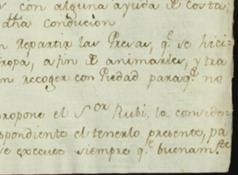 con alguna ayuda de costa,
dha conducion
Repartir las Presas, q.e se hicie
ropa, a fin de animarles, y tra
recoger con Piedad paraq.e no
propone el S.or Rubi, la conside
spondiente el tenerlo presente, pa
se execute siempre q.e buenam.te